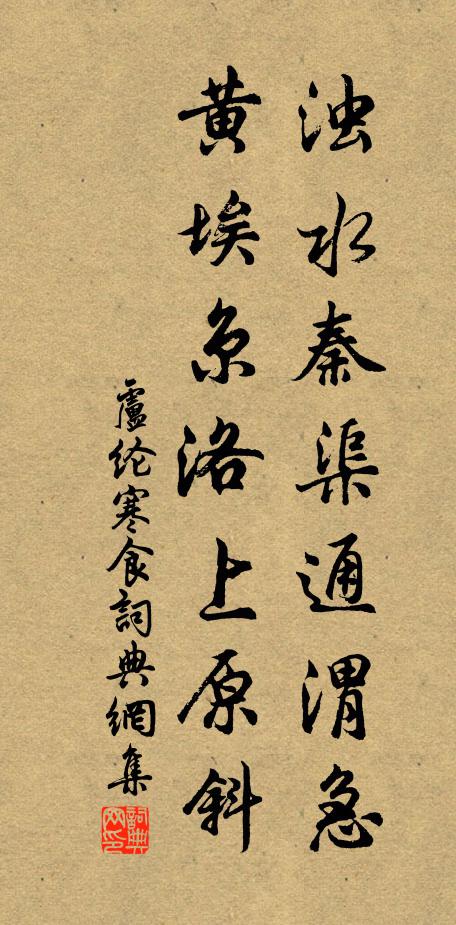 浊水秦渠通渭急
黄埃京洛上原斜
盧纶寒食詞典網集
詞典网印